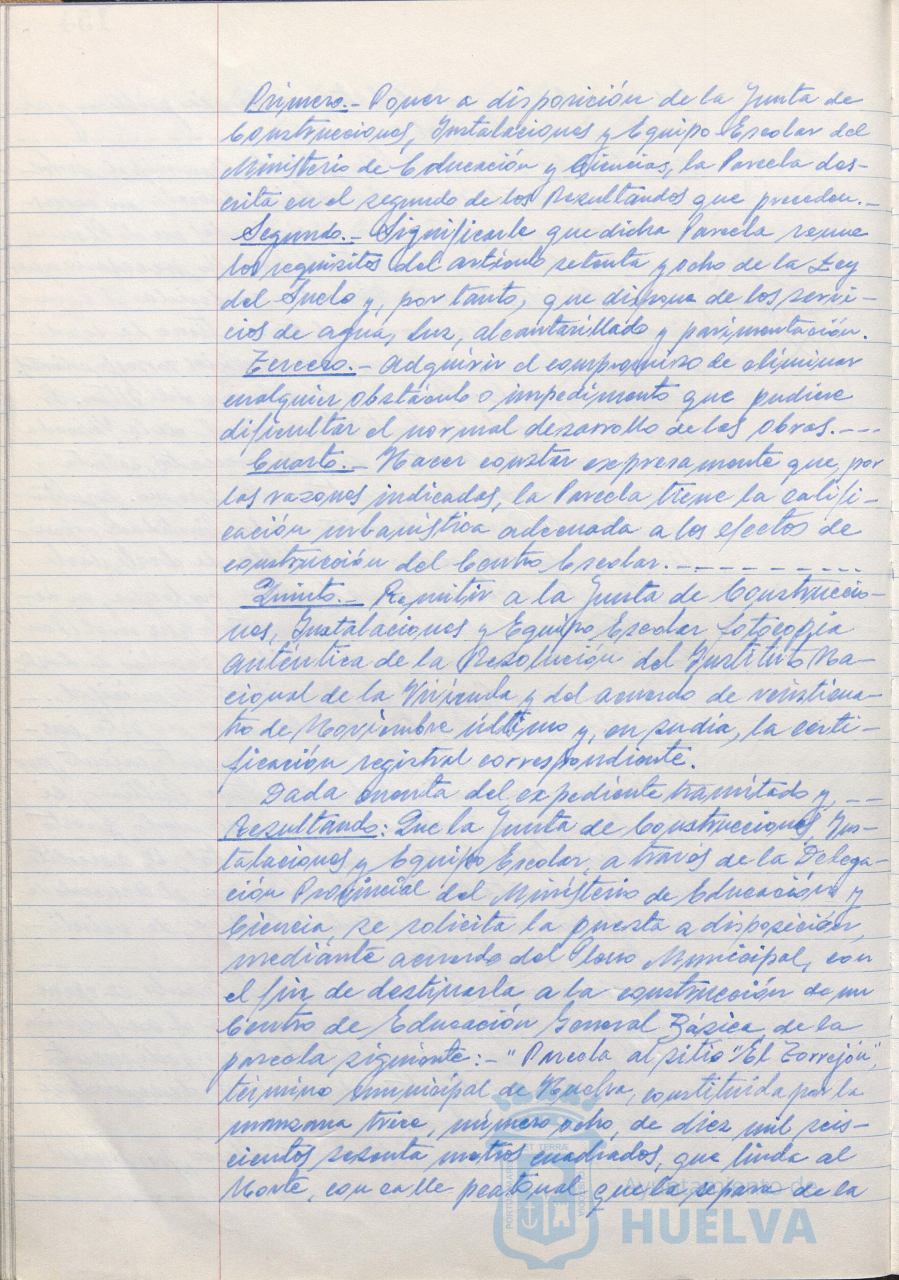 Primero.- Poner a disposición de la Junta de
Construcciones, Instalaciones y Equipo Escolar del
Ministerio de Educación y Ciencias, la Parcela des-
crita en el segundo de los Resultandos que preceden.-
Segundo.- Significarle que dicha Parcela reune
los requisitos del artículo setenta y ocho de la Ley
del Suelo y, por tanto, que dispone de los servi-
cios de agua, luz, alcantarillado y pavimentación.
Tercero.- Adquirir el compromiso de eliminar
cualquier obstáculo o impedimento que pudiere
dificultar el normal desarrollo de las obras.---
Cuarto.- Hacer constar expresamente que, por
las razones indicadas, la Parcela tiene la califi-
cación urbanística adecuada a los efectos de
construcción del Centro Escolar.----------
Quinto.- Remitir a la Junta de Construccio-
nes, Instalaciones y Equipo Escolar fotocopia
auténtica de la Resolución del Instituto Na-
cional de la Vivienda y del acuerdo de veinticua-
tro de Noviembre último y, en su día, la certi-
ficación registral correspondiente.
Dada cuenta del expediente tramitado y, --
Resultando: Que la Junta de Construcciones, Ins-
talaciones y Equipo Escolar, a través de la Delega-
ción Provincial del Ministerio de Educación y
Ciencia, se solicita la puesta a disposición,
mediante acuerdo del Pleno Municipal, con
el fin de destinarla a la construcción de un
Centro de Educación General Básica, de la
parcela siguiente:- "Parcela al sitio "El Torrejón",
término municipal de Huelva, constituida por la
manzana trece, número ocho, de diez mil seis-
cientos sesenta metros cuadrados, que linda al
Norte, con calle peatonal que la separa de la
Ayuntamiento de
HUELVA